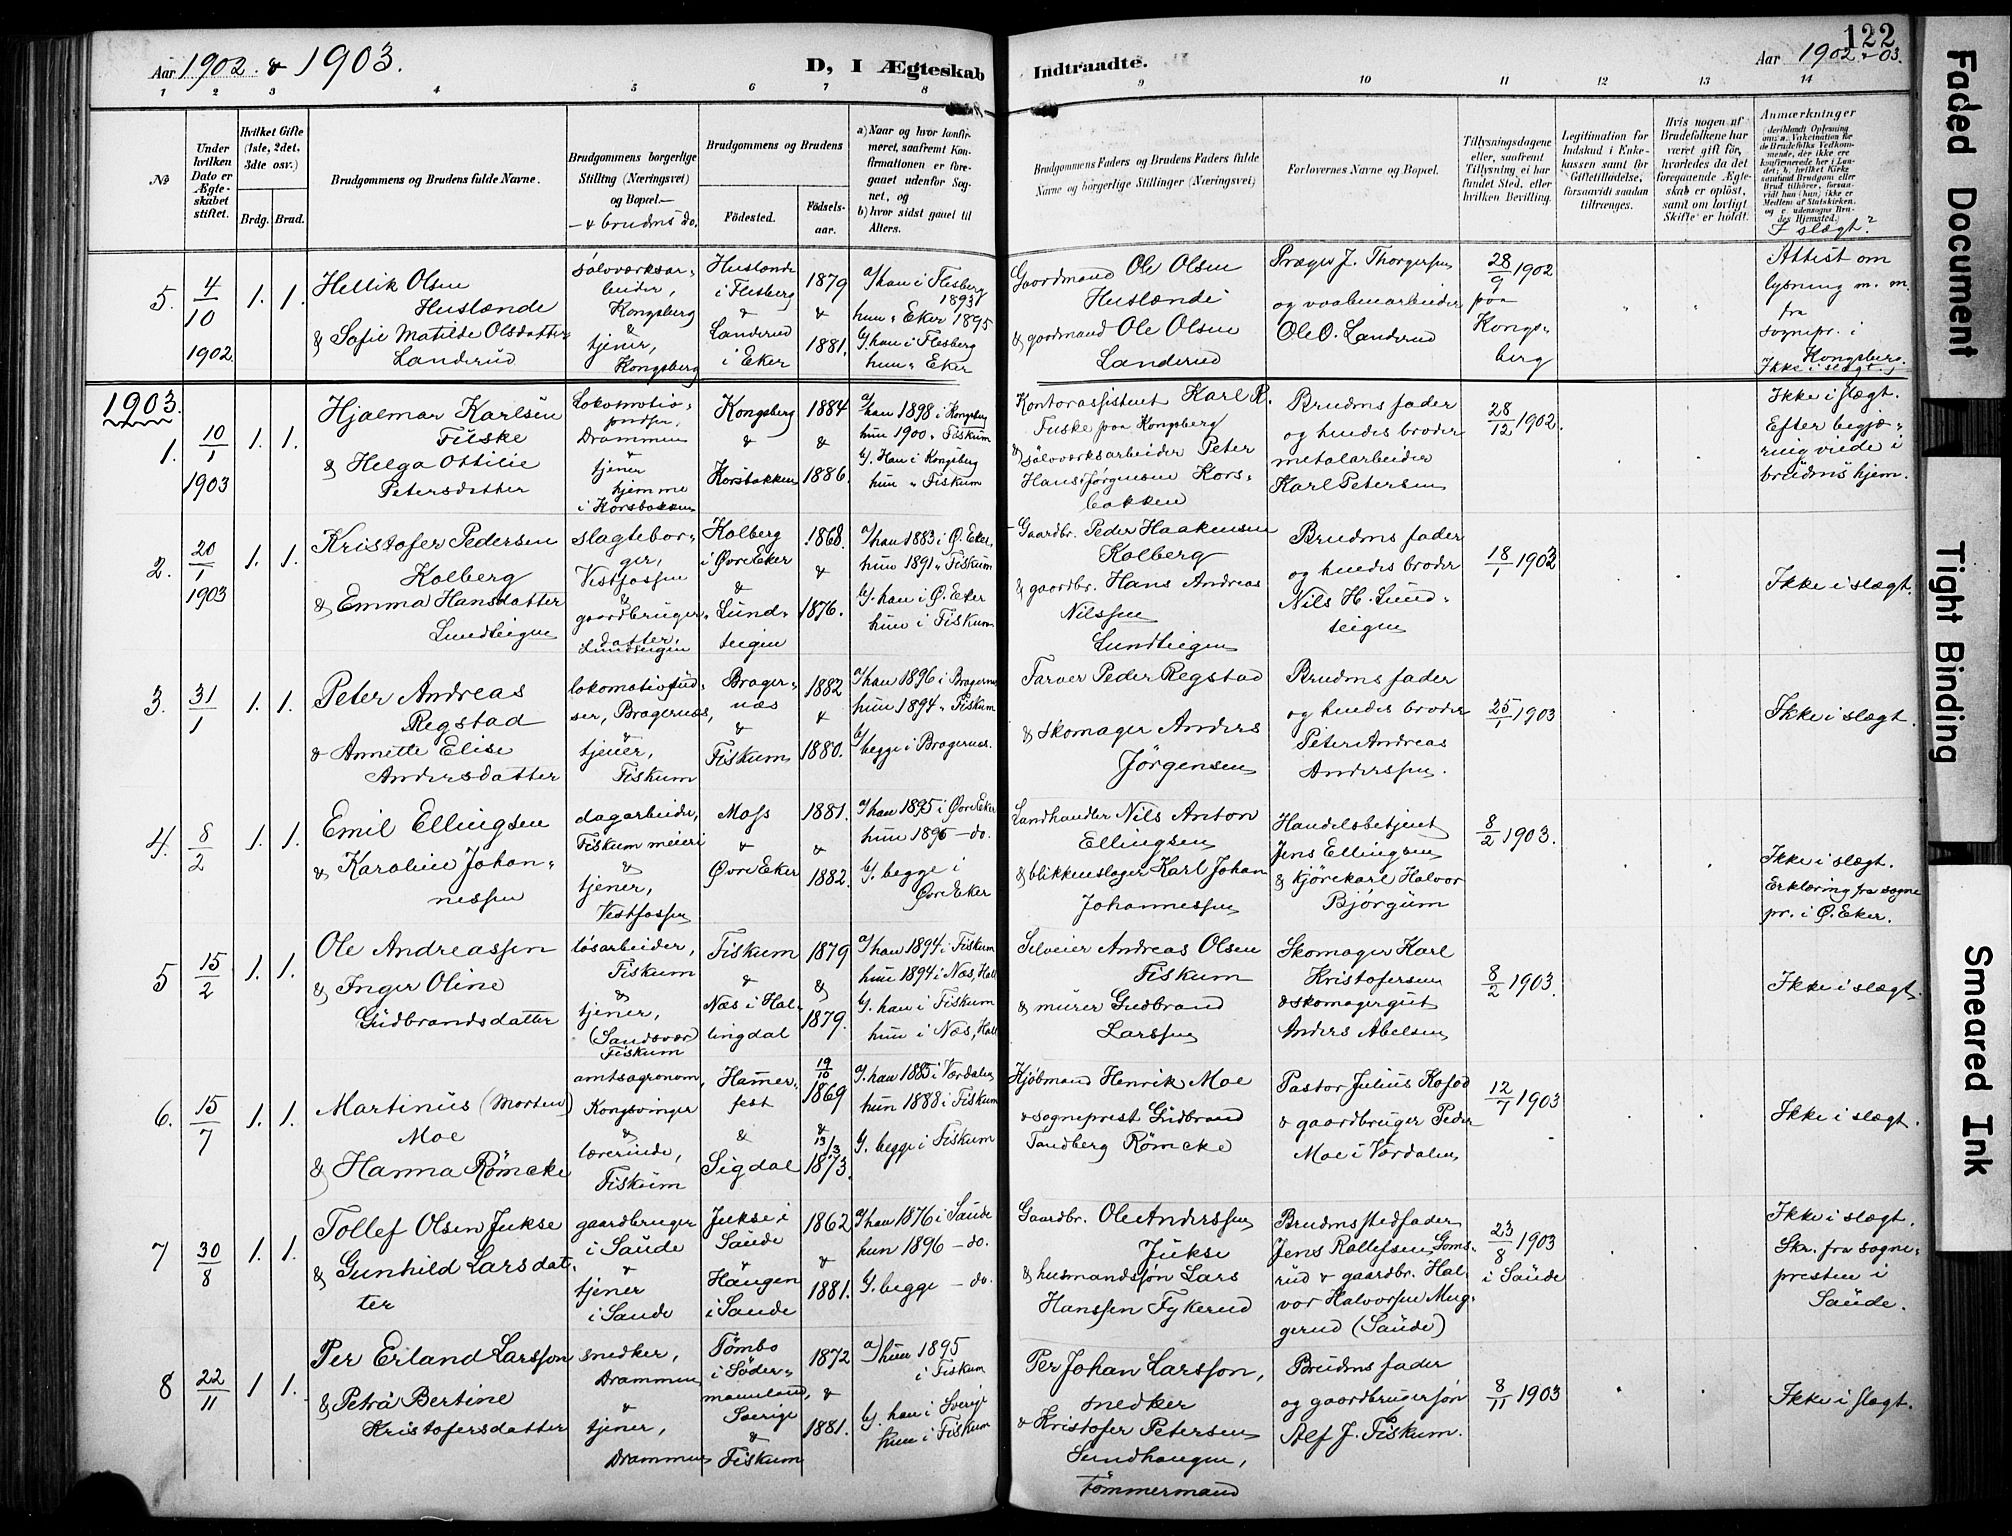 Aar 1902 & 1903.
D, I Ægteskab
Indtraadte.
Aar 1902 & 03.
122
1 2 3 4 5 6 7 8
9 10 11 12 13 14
No
Under hvilken Dato er Ægteskabet stiftet.
Hvilket Gifte (1ste, 2det, 3die osv.)
Brdg. Brud.
Brudgommens og Brudens fulde Navne.
Brudgommens borgerlige Stilling (Næringsvei) og Bopæl.
— & brudens do.
Brudgommens og Brudens
Fødested.
Fødselsaar.
a) Naar og hvor konfirmeret, saafremt Konfirmationen er foregaaet udenfor Sognet, og
b) hvor sidst gaaet til Alters.
Brudgommens Faders og Brudens Faders fulde Navne og borgerlige Stillinger (Næringsvei)
Forlovernes Navne og Bopæl.
Tillysningsdagene eller, saafremt Tillysning ei har fundet Sted, efter hvilken Bevilling.
Legitimation for Indskud i Enkekassen samt for Giftetilladelse, forsaavidt saadan tiltrænges.
Hvis nogen af Brudefolkene har været gift før, hvorledes da det foregaaende Ægteskab er opløst, samt om lovligt Skifte er holdt.
Anmærkninger
I slægt?
5.
4/10 1902
1. 1.
Hellik Olsen
Huslænde
& Sofie Matilde Olsdatter
Landerud
sølvværksarbeider,
Kongsberg
&
tjener,
Kongsberg
Huslænde
i Flesberg
&
Landerud
i Eker
1879
&
1881.
a) han i Flesberg
1893
hun " Eker 1895
b). han i Flesberg
hun " Eker
Gaardmand Ole Olsen
Huslænde
& gaardmand Ole Olsen
Landerud
Præger J. Thorgersen
og vaabenarbeider
Ole O. Landerud
28/9 1902
paa
Kongsberg
Attest om
lysning m. m.
fra
sognepr. i
Kongsberg.
Ikke i slægt.
1903.
1.
10/1 1903
1. 1.
Hjalmar Karlsen
Fuske
& Helga Ottilie
Petersdatter
Lokomotivpudser,
Drammen
&
tjener
hjemme
i Korsbakken
Kongsberg
&
Korsbakken
1884
&
1886.
a) han 1898 i Kongsberg
hun 1900 " Fiskum
b). Han i Kongsberg
hun " Fiskum
Kontorassistent Karl R.
Fuske paa Kongsberg
& sølvværksarbeider Peter
Hans Jørgensen Korsbakken
Brudens fader
og hendes broder
metalarbeider
Karl Petersen
28/12 1902.
Ikke i slægt.
Efter begjæring viede i
brudens hjem.
2.
20/1 1903
1. 1.
Kristofer Pedersen
Kolberg
& Emma Hansdatter
Lundteigen
slagteborger,
Vestfossen
&
gaardbrugerdatter,
Lundteigen
Kolberg
i Øvre Eker
&
Lundteigen
1868.
&
1876.
a) han 1883 i Ø. Eker.
hun 1891 " Fiskum
b). han i Ø. Eker
hun i Fiskum
Gaardbr. Peder Haakensen
Kolberg
& gaardbr. Hans Andreas
Nilssen
Lundteigen
Brudens fader
og hendes broder
Nils H. Lundteigen
18/1 1903
Ikke i slægt.
3.
31/1
1. 1.
Peter Andreas
Regstad
& Annette Elise
Andersdatter
lokomotivpudser, Bragernæs,
&
tjener,
Fiskum
Bragernæs
&
Fiskum
1882
&
1880.
a) han 1896 i Bragernæs
hun 1894 " Fiskum
b) begge i Bragernæs.
Farver Peder Regstad
& skomager Anders
Jørgensen
Brudens fader
og hendes broder
Peter Andreas
Anderssen.
25/1 1903
Ikke i slægt.
4.
8/2
1. 1.
Emil Ellingsen
& Karoline Johannessen
dagarbeider,
Fiskum meieri
&
tjener,
Vestfossen
Moss
&
Øvre Eker
1881.
&
1882.
a) han 1895 i Øvre Eker
hun 1896 — do.
b). begge i
Øvre Eker
Landhandler Nils Anton
Ellingsen
& blikkenslager Karl Johan
Johannessen
Handelsbetjent
Jens Ellingsen
& kjørekarl Halvor
Bjørgum
8/2 1903.
Ikke i slægt.
Erklæring fra sogne
pr. i Ø. Eker.
5
15/2
1. 1.
Ole Andreassen
& Inger Oline
Gudbrandsdatter
løsarbeider,
Fiskum
&
tjener,
(Sandsvær)
Fiskum
Fiskum
&
Næs i Hallingdal
1879
&
1879.
a) han 1894 i Fiskum
hun 1894 i Næs, Hall
b). han i Fiskum
hun i Næs, Hall
Selveier Andreas Olsen
Fiskum
& murer Gudbrand
Larssen
Skomager Karl
Kristofersen
& skomagergut
Anders Abelsen
8/2 1903.
Ikke i slægt.
6.
15/7
1. 1.
Martinus (Morten)
Moe
& Hanna Rømcke
amtsagronom,
Kongsvinger
&
lærerinde,
Fiskum
Hammerfest
&
Sigdal
19/10
1869
&
13/3
1873.
a). han 1885 i Værdalen
hun 1888 i Fiskum
b). begge i Fiskum
Kjøbmand Henrik Moe
& sogneprest Gudbrand
Tandberg Rømcke
Pastor Julius Kofod
& gaardbruger Peder
Moe i Værdalen
12/7 1903
Ikke i slægt.
7
30/8
1. 1.
Tollef Olsen Jukse
& Gunhild Larsdatter
gaardbruger
i Saude
&
tjener
i Saude
Jukse i
Saude
&
Haugen
i Saude
1862
&
1881.
a) han 1876 i Saude
hun 1896 — do.
b). begge — do.
Gaardbr. Ole Anderssen
Jukse
& husmandssøn Lars
Hanssen Fykerud
Brudens stedfader
Jens Rollefsen Gomsrud & gaardbr. Halvor Halvorsen Muggerud (Saude)
23/8 1903
i Saude
Ikke i slægt.
Skr. fra sognepresten i
Saude.
8
22/11
1 1.
Per Erland Larsson
& Petra Bertine
Kristofersdatter
snedker,
Drammen
&
tjener,
Drammen
Tømbo
i Södermanland,
Sverige
&
Fiskum
1872
&
1881.
a) hun 1895
i Fiskum
b). han i Sverige
hun i Fiskum
Per Johan Larsson,
snedker
& Kristofer Petersen
Sundhaugen,
tømmermand
Brudens fader
og gaardbrugersøn
Alf J. Fiskum.
8/11 1903
Ikke i slægt.
Faded Document
Tight Binding
Smeared Ink